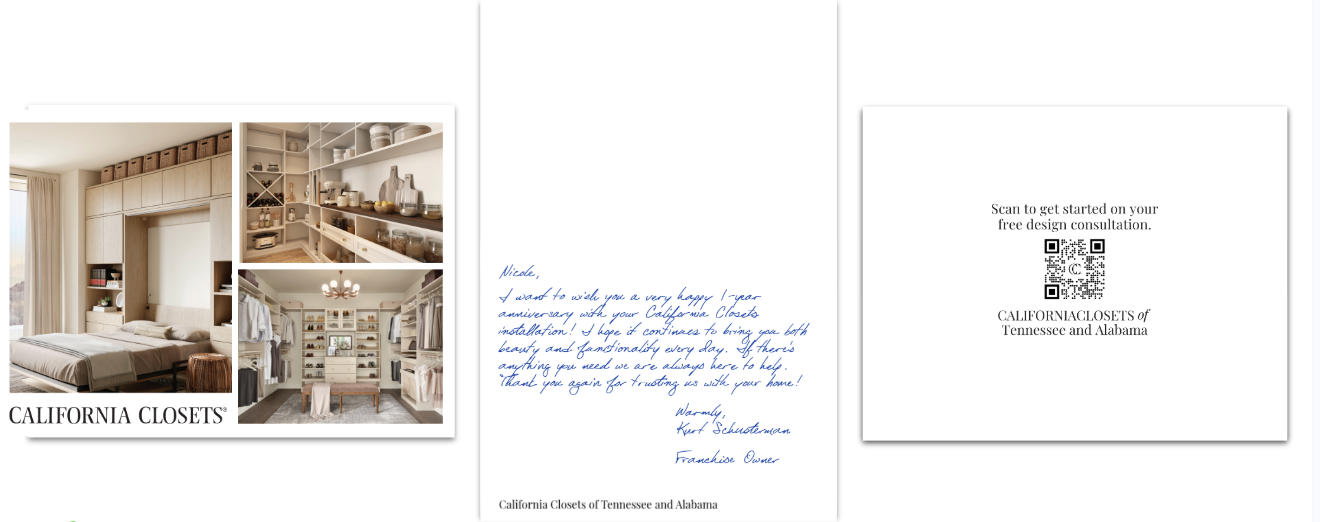 CALIFORNIA CLOSETS®
Nicole,
I want to wish you a very happy 1-year
anniversary with your California Closets
installation! I hope it continues to bring you both
beauty and functionality every day. If there's
anything you need we are always here to help.
Thank you again for trusting us with your home!
Warmly,
Kurt Schusterman
Franchise Owner
California Closets of Tennessee and Alabama
Scan to get started on your
free design consultation.
CALIFORNIACLOSETS of
Tennessee and Alabama